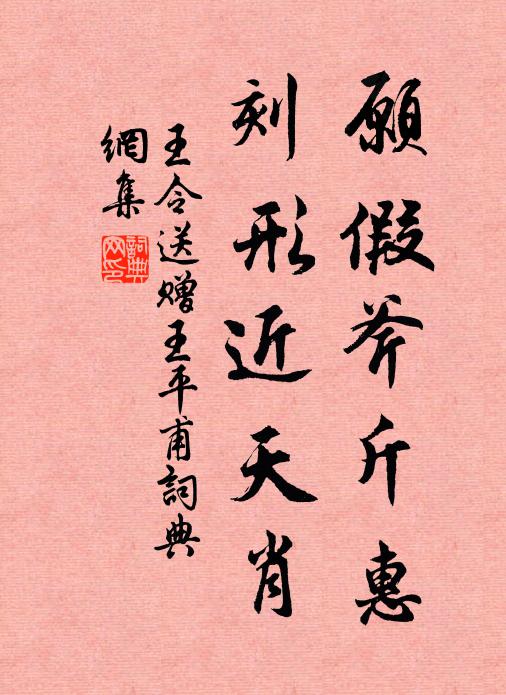 願假斧斤惠
刻形近天肖
王令送赠王平甫詞典
網集
詞典
网印